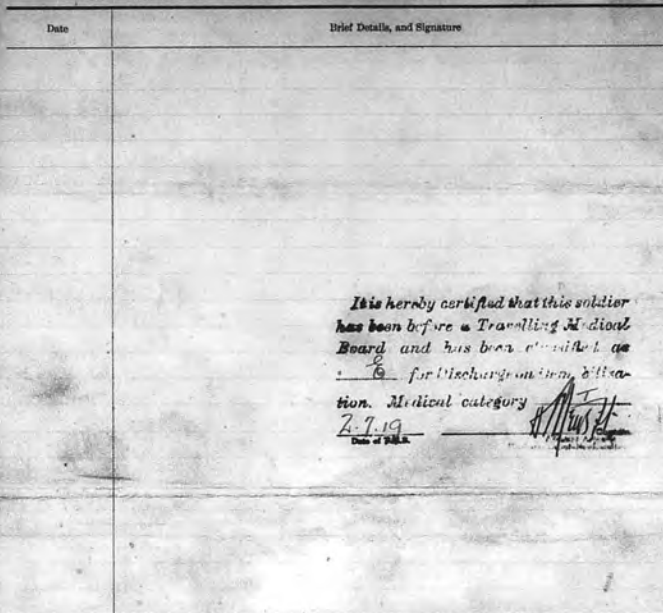 Date
Brief Details, and Signature
It is hereby certified that this soldier
has been before a Travelling Medical
Board and has been classified as
for Discharge on demobiliza-
tion. Medical category I
2.7.19
Date of T.M.B.